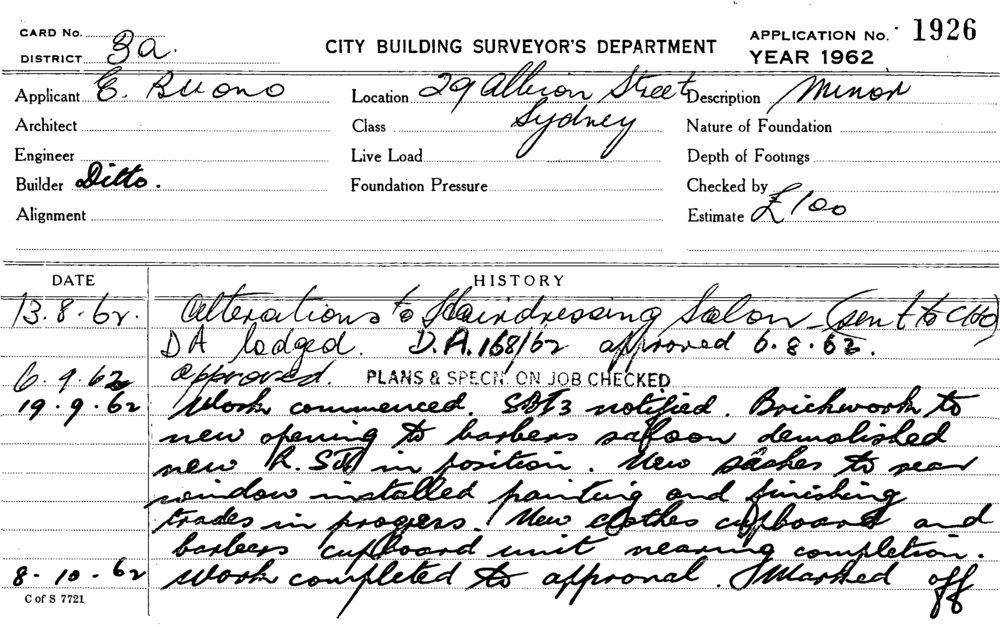 CARD No.
DISTRICT 3a.
CITY BUILDING SURVEYOR'S DEPARTMENT
APPLICATION No. 1926
YEAR 1962
Applicant E. Buono
Location 29 Albion Street
Sydney
Description Minor
Architect
Class
Nature of Foundation
Engineer
Live Load
Depth of Footings
Builder Ditto.
Foundation Pressure
Checked by
Alignment
Estimate £100
DATE HISTORY
13.8.62. Alterations to Hairdressing Salon (sent to CHO)
DA lodged. D.A.168/62 approved 6.8.62.
6.9.62 approved. PLANS & SPECN. ON JOB CHECKED
19.9.62 Work commenced. notified. Brickwork to
new opening to barbers saloon demolished
new R.S. in position. New sashes to rear
window installed painting and finishing
trades in progress. New clothes cupboard and
barbers cupboard unit nearing completion.
8.10.62 Work completed to approval. Marked off
C of S 7721